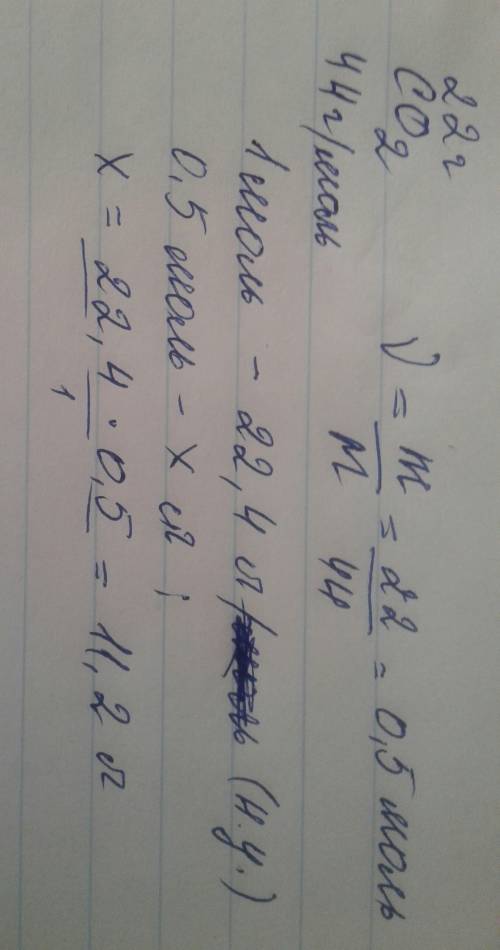 22 г
CO2
44 г/моль
ν = m/M = 22/44 = 0,5 моль
1 моль - 22,4 л (н.у.)
0,5 моль - x л;
x = 22,4 · 0,5 / 1 = 11,2 л